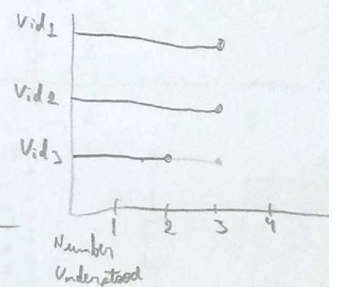 Vid1
Vid2
Vid3
1 2 3 4
Number
Understood